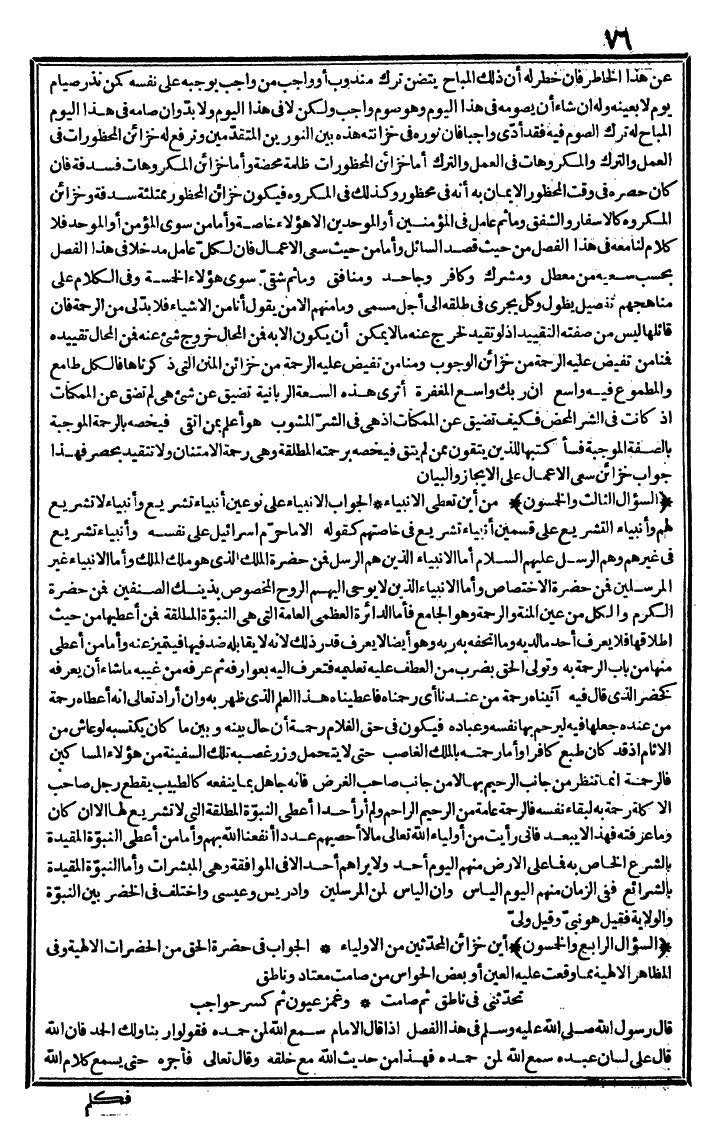 ٧٦
عن هذا الخاطر فان خطر له أن ذلك المباح يتضمن ترك مندوب أو واجب من واجب يوجبه على نفسه كمن نذر صيام
يوم لا بعينه وله ان شاء أن يصومه فى هذا اليوم وهو صوم واجب ولكن لا فى هذا اليوم ولا بدّ وان صامه فى هذا اليوم
المباح له ترك الصوم فيه فقد أدّى واجبا فان نوره فى خزانته هذه بين النورين المتقدّمين وترفع له خزائن المحظورات فى
العمل والترك والمكروهات فى العمل والترك أما خزائن المحظورات ظلمة محضة وأما خزائن المكروهات فسدفة فان
كان حضره فى وقت المحظور الايمان به أنه فى محظور وكذلك فى المكروه فيكون خزائن المحظور ممتلئة سدفة وخزائن
المكروه كالاسفار والشفق وما ثم عامل فى المؤمنين أو الموحدين الا هؤلاء خاصة وأما من سوى المؤمن أو الموحد فلا
كلام لنا معه فى هذا الفصل من حيث قصد السائل وأما من حيث سعى الاعمال فان لكل عامل مدخلا فى هذا الفصل
بحسب سعيه من معطل ومشرك وكافر وجاحد ومنافق وما ثم شقىّ سوى هؤلاء الخمسة وفى الكلام على
مناهجهم تفصيل يطول وكل يجرى فى طلقه الى أجل مسمى وما منهم الا من يقول أنا من الاشياء فلا بدّ لى من الرحمة فان
قائلها ليس من صفته التقييد اذ لو تقيد لخرج عنه ما لا يمكن أن يكون الا به فمن المحال خروج شئ عنه فمن المحال تقييده
فمنا من تفيض عليه الرحمة من خزائن الوجوب ومنا من تفيض عليه الرحمة من خزائن المنن التى ذكرناها فالكل طامع
والمطموع فيه واسع ان ربك واسع المغفرة أترى هذه السعة الربانية تضيق عن شئ هى لم تضق عن الممكنات
اذ كانت فى الشر المحض فكيف تضيق عن الممكنات اذ هى فى الشر المشوب هو أعلم بمن اتقى فيخصه بالرحمة الموجبة
بالصفة الموجبة فسأكتبها للذين يتقون بمن لم يتق فيخصه برحمته المطلقة وهى رحمة الامتنان ولا تتقيد بحصر فهذا
جواب خزائن سعى الاعمال على الايجاز والبيان
﴿السؤال الثالث والخمسون﴾ من أين تعطى الانبياء * الجواب الانبياء على نوعين أنبياء تشريع وأنبياء لا تشريع
لهم وأنبياء التشريع على قسمين أنبياء تشريع فى خاصتهم كقوله الا ما حرّم اسرائيل على نفسه وأنبياء تشريع
فى غيرهم وهم الرسل عليهم السلام أما الانبياء الذين هم الرسل فمن حضرة الملك الذى هو ملك الملك وأما الانبياء غير
المرسلين فمن حضرة الاختصاص وأما الانبياء الذين لا يوحى اليهم الروح المخصوص بذينك الصنفين فمن حضرة
الكرم والكل من عين المنة والرحمة وهو الجامع فأما الدائرة العظمى العامة التى هى النبوّة المطلقة فمن أعطيها من حيث
اطلاقها فلا يعرف أحد ما لديه وما اتحفه به ربه وهو أيضا لا يعرف قدر ذلك لانه لا يقابله ضد فيها فيتميز عنه وأما من أعطى
منها من باب الرحمة به وتولى الحق بضرب من العطف عليه تعليمه فتعرف اليه بعوارفه ثم عرفه من غيبه ما شاء أن يعرفه
كخضر الذى قال فيه آتيناه رحمة من عندنا أى رحمناه فاعطيناه هذا العلم الذى ظهر به وان أراد تعالى انه أعطاه رحمة
من عنده جعلها فيه ليرحم بها نفسه وعباده فيكون فى حق الغلام رحمة أن حال بينه و بين ما كان يكتسبه لو عاش من
الآثام اذ قد كان طبع كافرا وأما رحمته بالملك الغاصب حتى لا يتحمل وزر غصبه تلك السفينة من هؤلاء المساكين
فالرحمة انما تنظر من جانب الرحيم بها لا من جانب صاحب الغرض فانه جاهل بما ينفعه كالطبيب يقطع رجل صاحب
الاكلة رحمة به لبقاء نفسه فالرحمة عامة من الرحيم الراحم ولم أر أحدا أعطى النبوّة المطلقة التى لا تشريع لها الا ان كان
وما عرفته فهذا لا يبعد فانى رأيت من أولياء الله تعالى ما لا أحصيهم عددا أنفعنا الله بهم وأما من أعطى النبوّة المقيدة
بالشرع الخاص به فما على الارض منهم اليوم أحد ولا يراهم أحد الا فى الموافقة وهى المبشرات وأما النبوّة المقيدة
بالشرائع ففى الزمان منهم اليوم الياس وان الياس لمن المرسلين وادريس وعيسى واختلف فى الخضر بين النبوّة
والولاية فقيل هو نبىّ وقيل ولىّ
﴿السؤال الرابع والخمسون﴾ أين خزائن المحدّثين من الاولياء * الجواب فى حضرة الحق من الحضرات الالهية وفى
المظاهر الالهية مما وقعت عليه العين أو بعض الحواس من صامت معتاد وناطق
تحدّثنى فى ناطق ثم صامت * وغمز عيون ثم كسر حواجب
قال رسول الله صلى الله عليه وسلم فى هذا الفصل اذا قال الامام سمع الله لمن حمده فقولوا ربنا ولك الحمد فان الله
قال على لسان عبده سمع الله لمن حمده فهذا من حديث الله مع خلقه وقال تعالى فأجره حتى يسمع كلام الله
فكلم